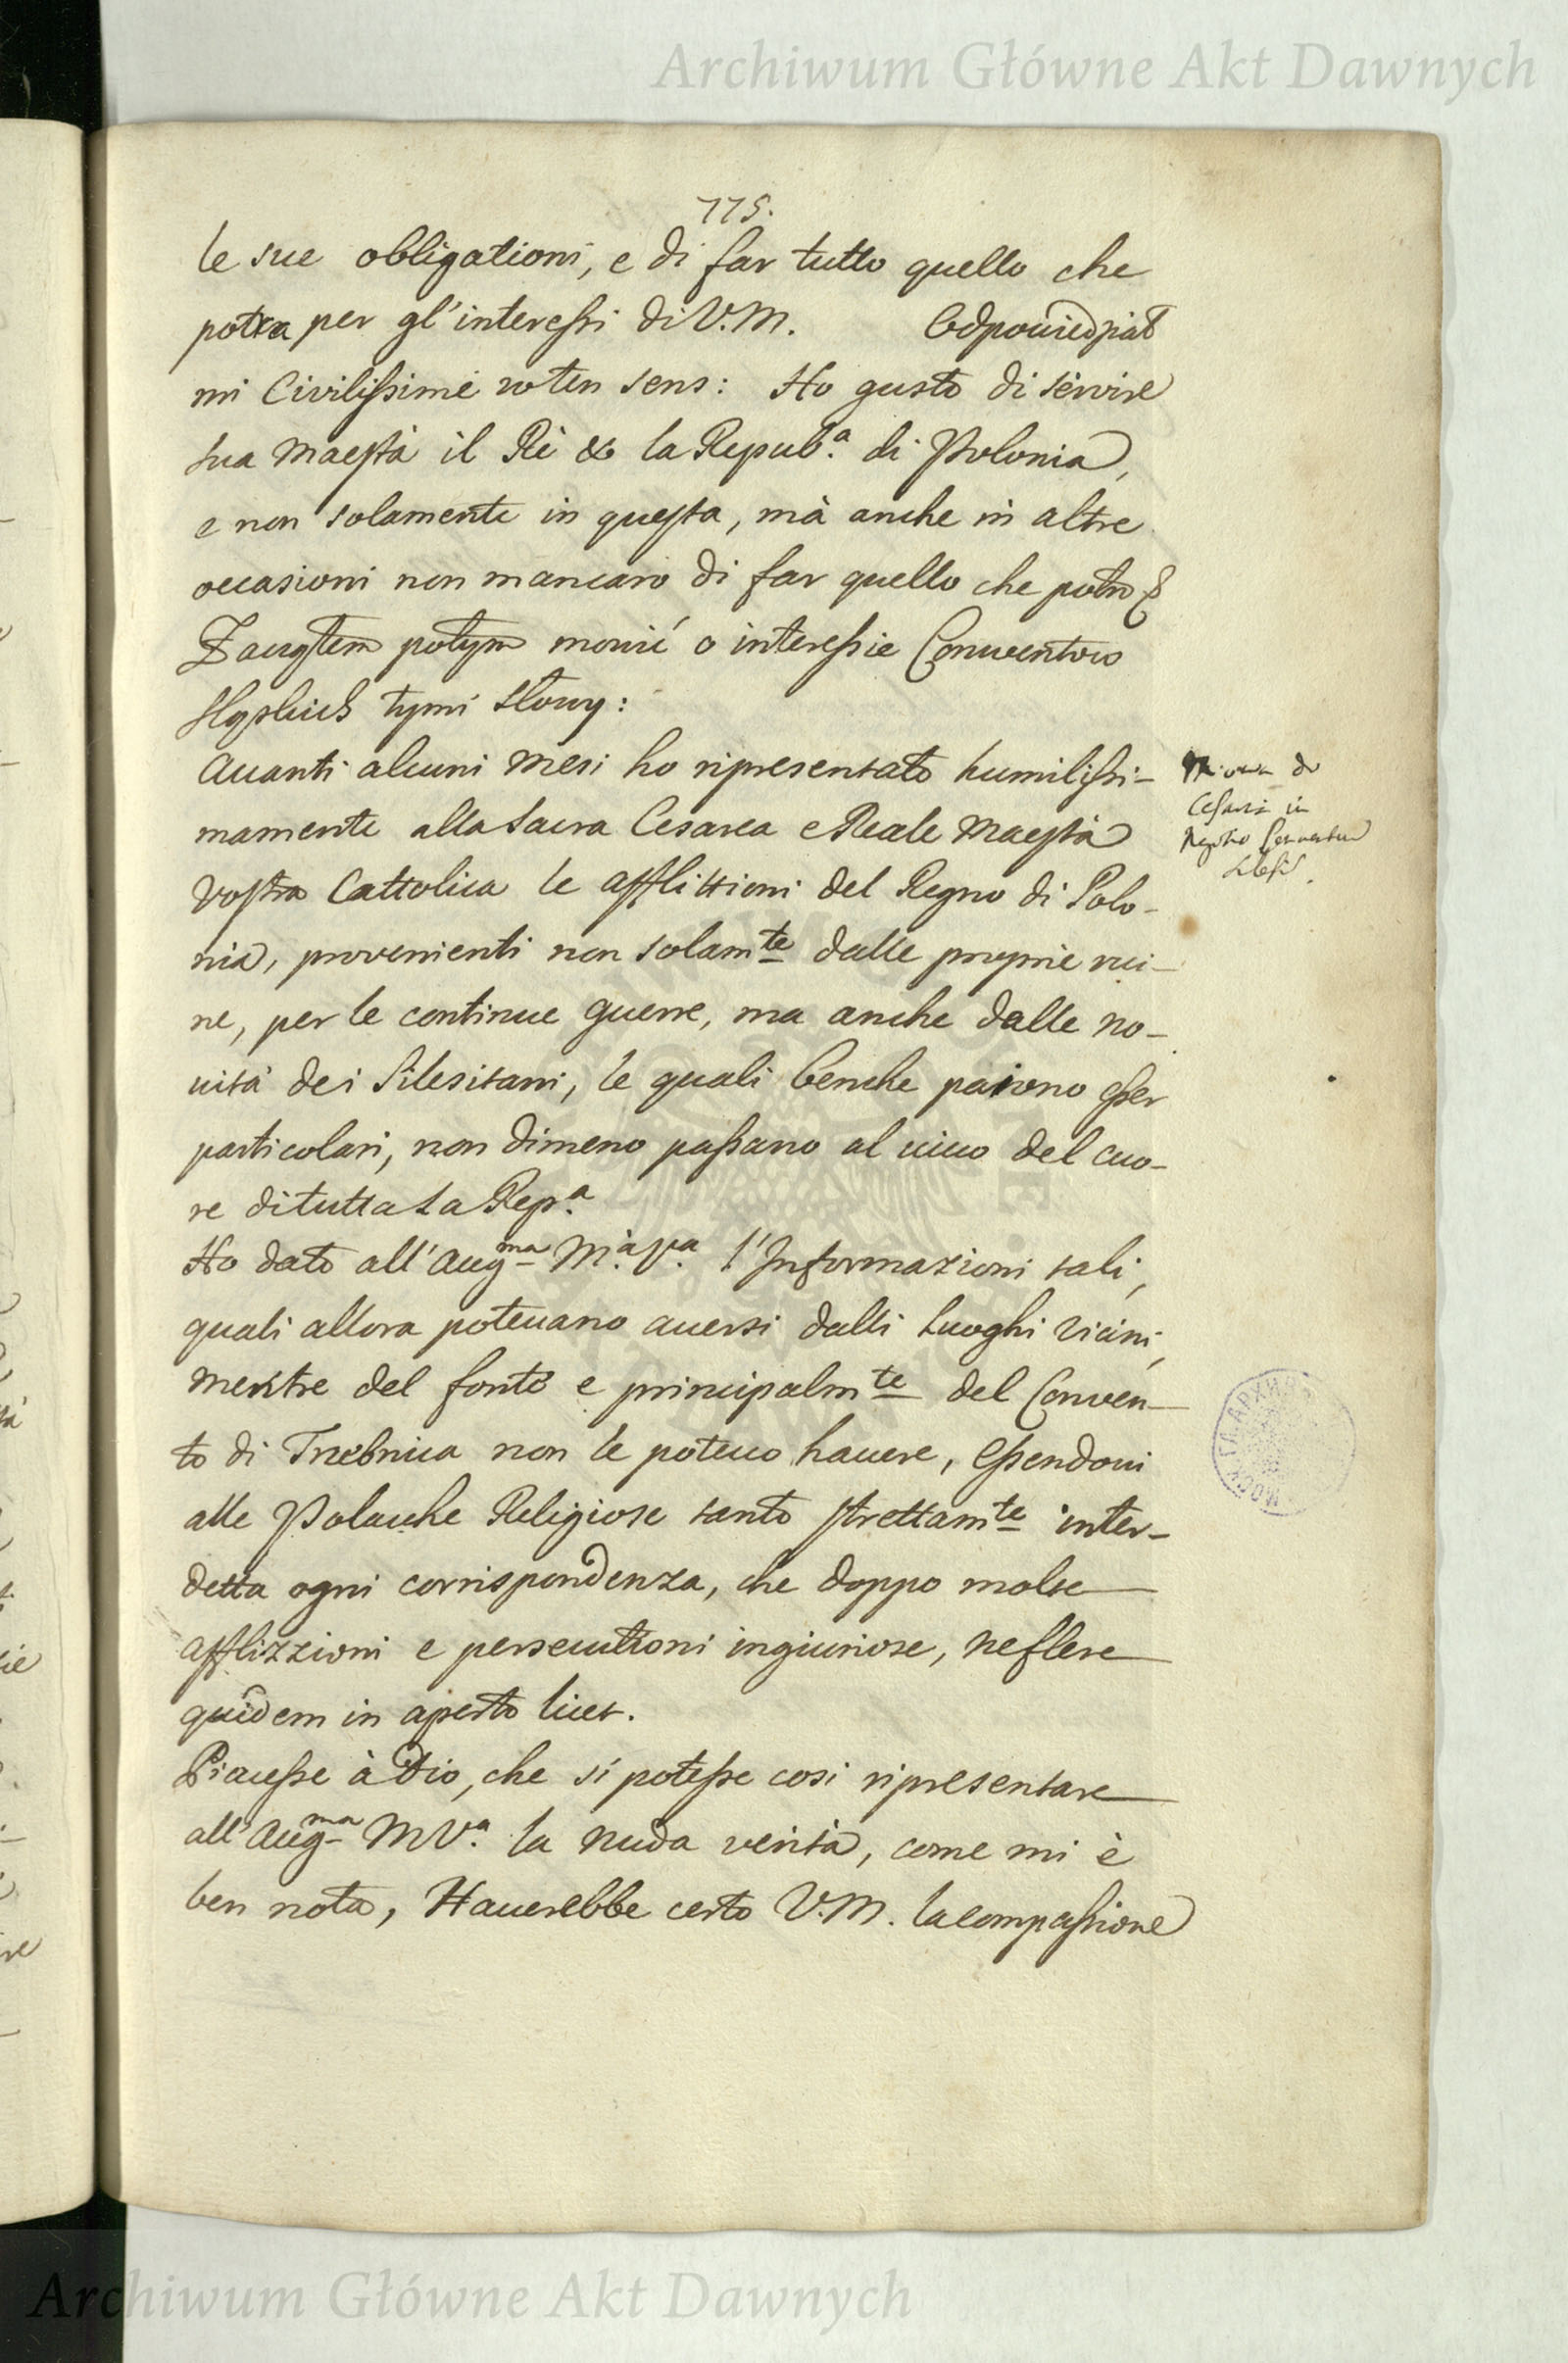 Archiwum Główne Akt Dawnych
115.
le sue obligationi, e di far tutto quello che
potra per gl'interessi di V.M. Odpowiedział
mi Civilissime w ten sens: Ho gusto di servire
sua Maestà il Rè & la Repub.a di Polonia,
e non solamente in questa, mà anche in altre
occasioni non mancaro di far quello che potro
Zacząłem potym mowić o interessie Conventow
Sląskich tymi słowy:
Avanti alcuni Mesi ho ripresentato humilissi-
mamente alla Sacra Cesarea e Reale Maestà
Vostra Cattolica le afflittioni del Regno di Polo-
nia, provenienti non solamte dalle proprie rui-
ne, per le continue guerre, ma anche dalle no-
uità dei Silesitani, le quali benche paiono esser
particolari, non dimeno passano al uiuo del cuo-
re di tutta la Rep.a
Ho dato all'Augma M.à V.a l'Informazioni tali,
quali allora poteuano auersi dalli Luoghi vicini,
mentre del fonte e principalmte del Conven-
to di Trzebnica non le poteuo hauere, essendoui
alle Polacche Religiose tanto strettamte inter-
detta ogni corrispondenza, che doppo molte
afflizzioni e persecutioni ingiuriose, ne flere
quidem in aperto licet.
Piacesse à Dio, che si potesse cosi ripresentare
all'Augma M V.a la nuda verità, come mi è
ben nota, Hauerebbe certo V.M. la compassione
Mowa do
Cesarza in
Archiwum Główne Akt Dawnych